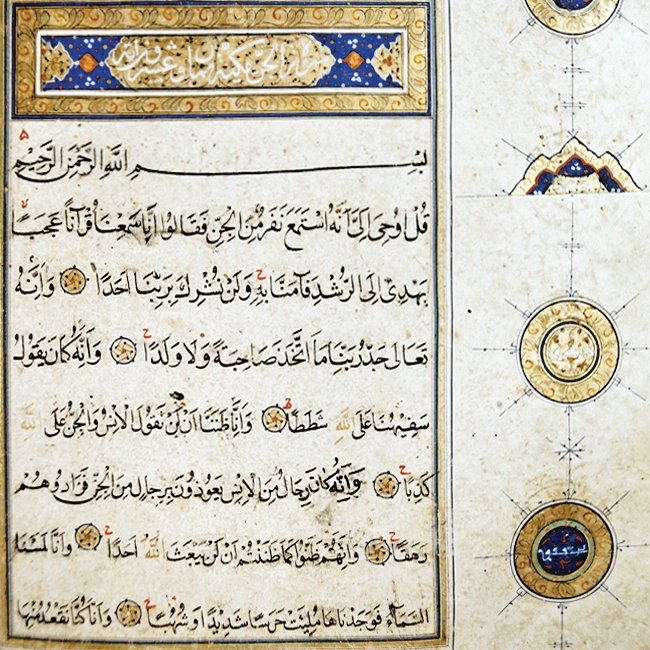 سورة الجن مكية ثمان وعشرون آية
بِسْمِ اللَّهِ الرَّحْمٰنِ الرَّحِيْمِ
قُلْ اُوحِىَ اِلَىَّ اَنَّهُ اسْتَمَعَ نَفَرٌ مِّنَ الْجِنِّ فَقَالُوا اِنَّا سَمِعْنَا قُرْآنًا عَجَبًا
يَهْدِىْ اِلَى الرُّشْدِ فَآمَنَّا بِهِ وَلَنْ نُشْرِكَ بِرَبِّنَا اَحَدًا وَاَنَّهُ
تَعَالَى جَدُّ رَبِّنَا مَا اتَّخَذَ صَاحِبَةً وَلَا وَلَدًا وَاَنَّهُ كَانَ يَقُوْلُ
سَفِيْهُنَا عَلَى اللَّهِ شَطَطًا وَاَنَّا ظَنَنَّا اَنْ لَنْ تَقُوْلَ الْاِنْسُ وَالْجِنُّ عَلَى اللَّهِ
كَذِبًا وَاَنَّهُ كَانَ رِجَالٌ مِّنَ الْاِنْسِ يَعُوْذُوْنَ بِرِجَالٍ مِنَ الْجِنِّ فَزَادُوهُمْ
رَهَقًا وَاَنَّهُمْ ظَنُّوْا كَمَا ظَنَنْتُمْ اَنْ لَنْ يَبْعَثَ اللَّهُ اَحَدًا وَاَنَّا لَمَسْنَا
السَّمَآءَ فَوَجَدْنَاهَا مُلِئَتْ حَرَسًا شَدِيْدًا وَشُهُبًا وَاَنَّا كُنَّا نَقْعُدُ مِنْهَا